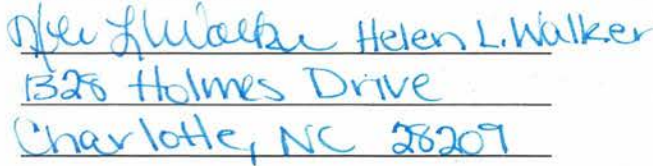 Helen L Walker Helen L. Walker
1328 Holmes Drive
Charlotte, NC 28209